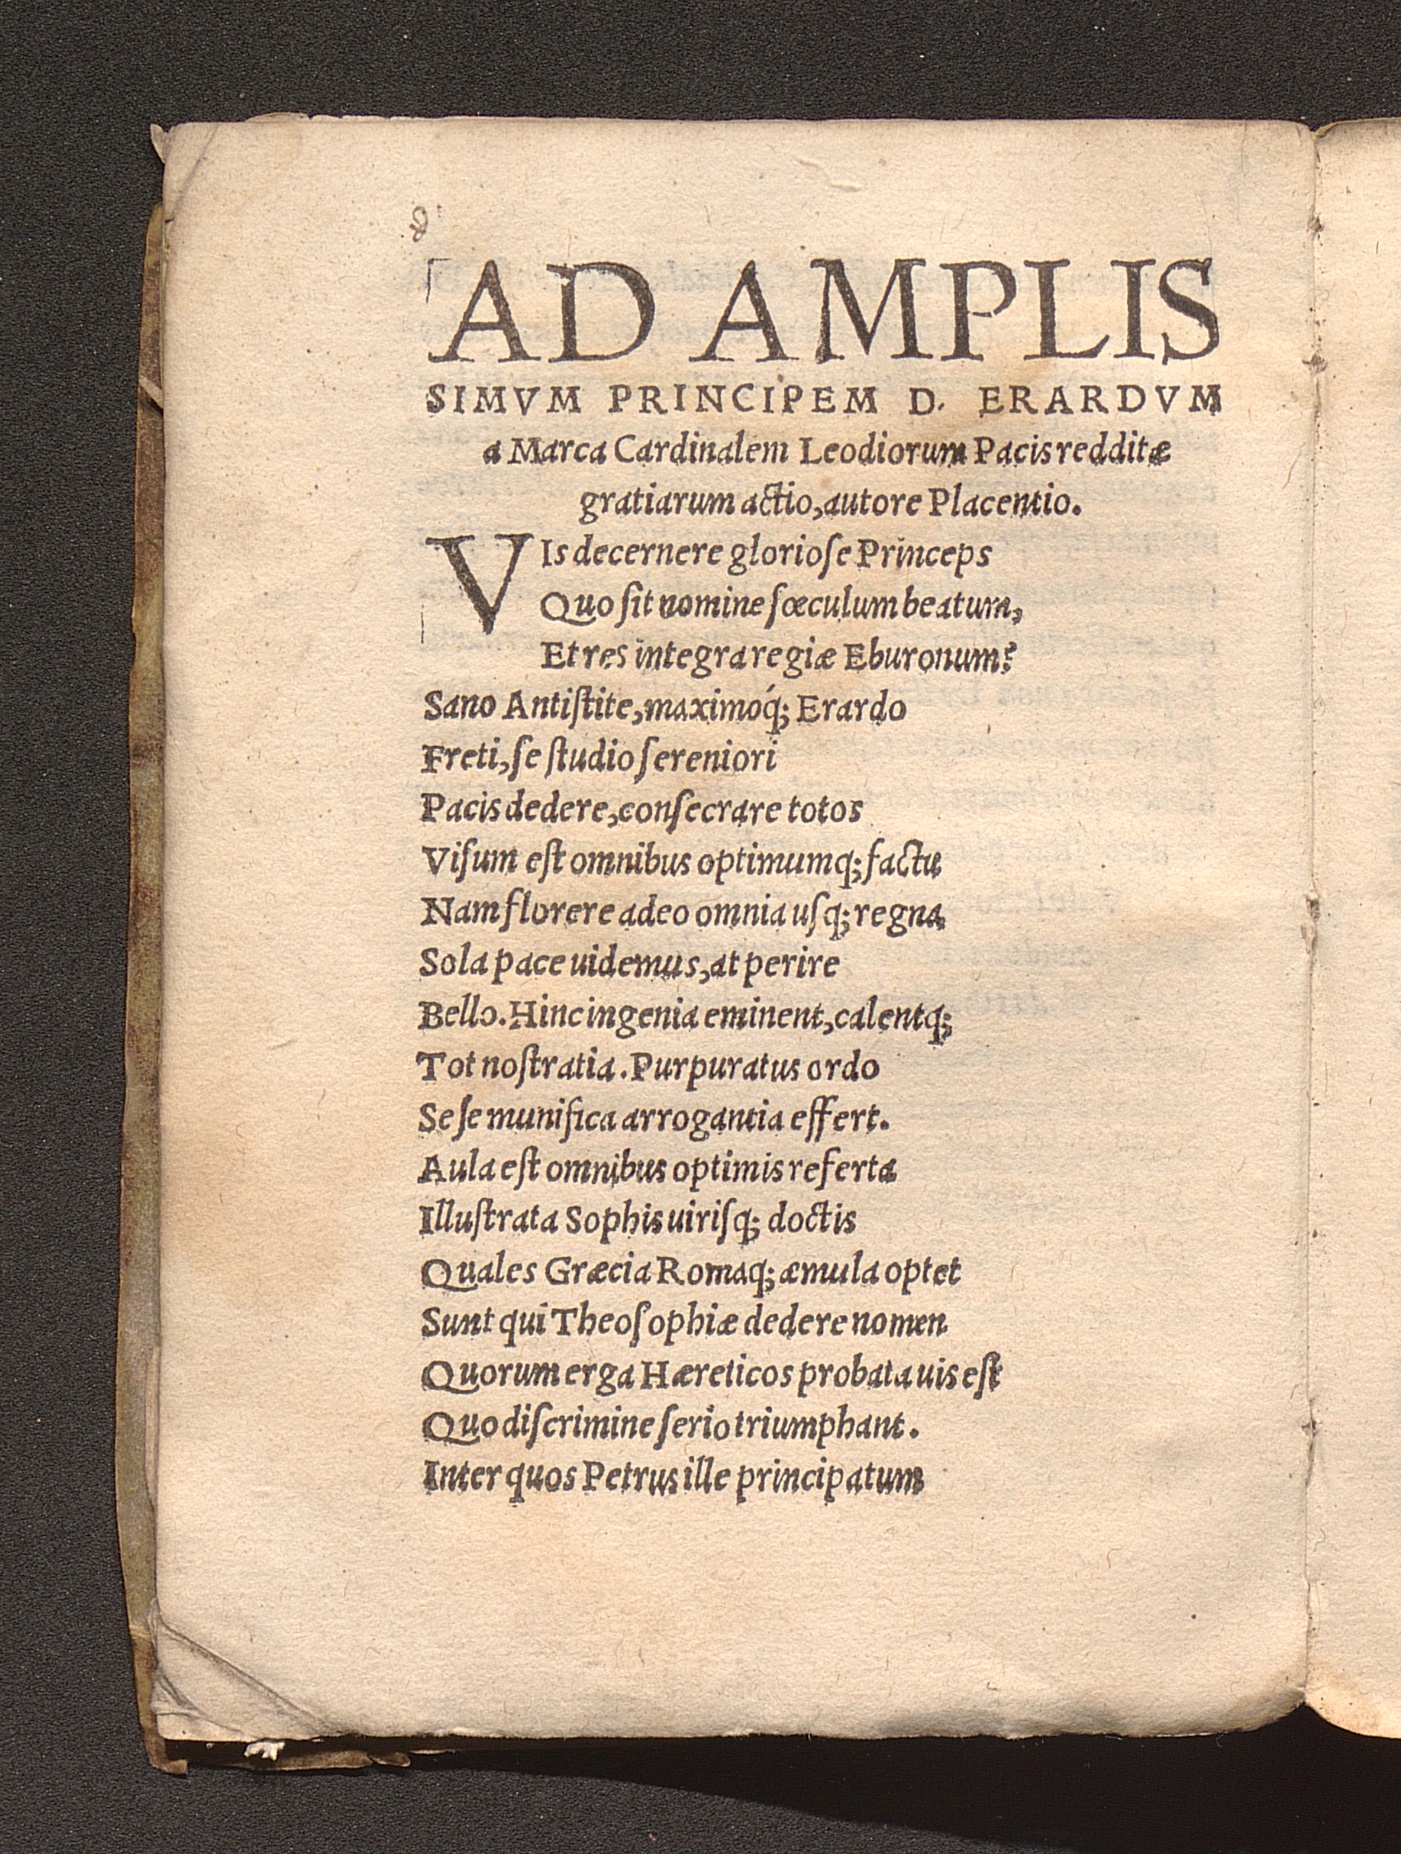 AD AMPLIS
SIMVM PRINCIPEM D. ERARDVM
a Marca Cardinalem Leodiorum Pacis redditæ
gratiarum actio, autore Placentio.
VIs decernere glorioſe Princeps
Quo ſit nomine ſœculum beatum,
Et res integra regiæ Eburonum?
Sano Antiſtite, maximoq́; Erardo
Freti, ſe ſtudio ſereniori
Pacis dedere, conſecrare totos
Viſum eſt omnibus optimumq; factu
Nam florere adeo omnia uſq; regna
Sola pace uidemus, at perire
Bello. Hinc ingenia eminent, calentq;
Tot noſtratia. Purpuratus ordo
Seſe munifica arrogantia effert.
Aula eſt omnibus optimis referta
Illuſtrata Sophis uiriſq; doctis
Quales Græcia Romaq; æmula optet
Sunt qui Theoſophiæ dedere nomen
Quorum erga Hæreticos probata uis eſt
Quo diſcrimine ſerio triumphant.
Inter quos Petrus ille principatum